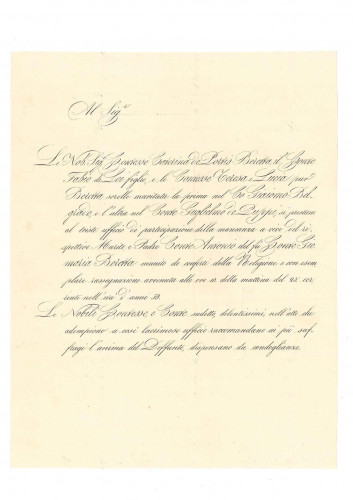 Al Sig.r
La Nob. Sig. Contessa Caterina de Portis Beretta, il Conte
Fabio di Lei figlio, e le Contesse Teresa e Lucia pur
Beretta sorelle maritate la prima nel Co. Giacomo Bel
grado, e l'altra nel Conte Guglielmo de Puppi, si prestano
al triste ufficio di partecipazione della mancanza a' vivi del ri-
spettivo Marito e Padre Conte Antonio del fu Conte Gio
maria Beretta munito de' conforti della Religione e con esem
plare rassegnazione avvenuta alle ore della mattina del cor
rente nell'età d'anni
Le Nobili Contesse e Conte sudetti, dolentissimi, nell'atto che
adempiono a così lacrimoso ufficio raccomandano ai pii suf
fragi l'anima del Deffunto, dispensano da condoglianze.